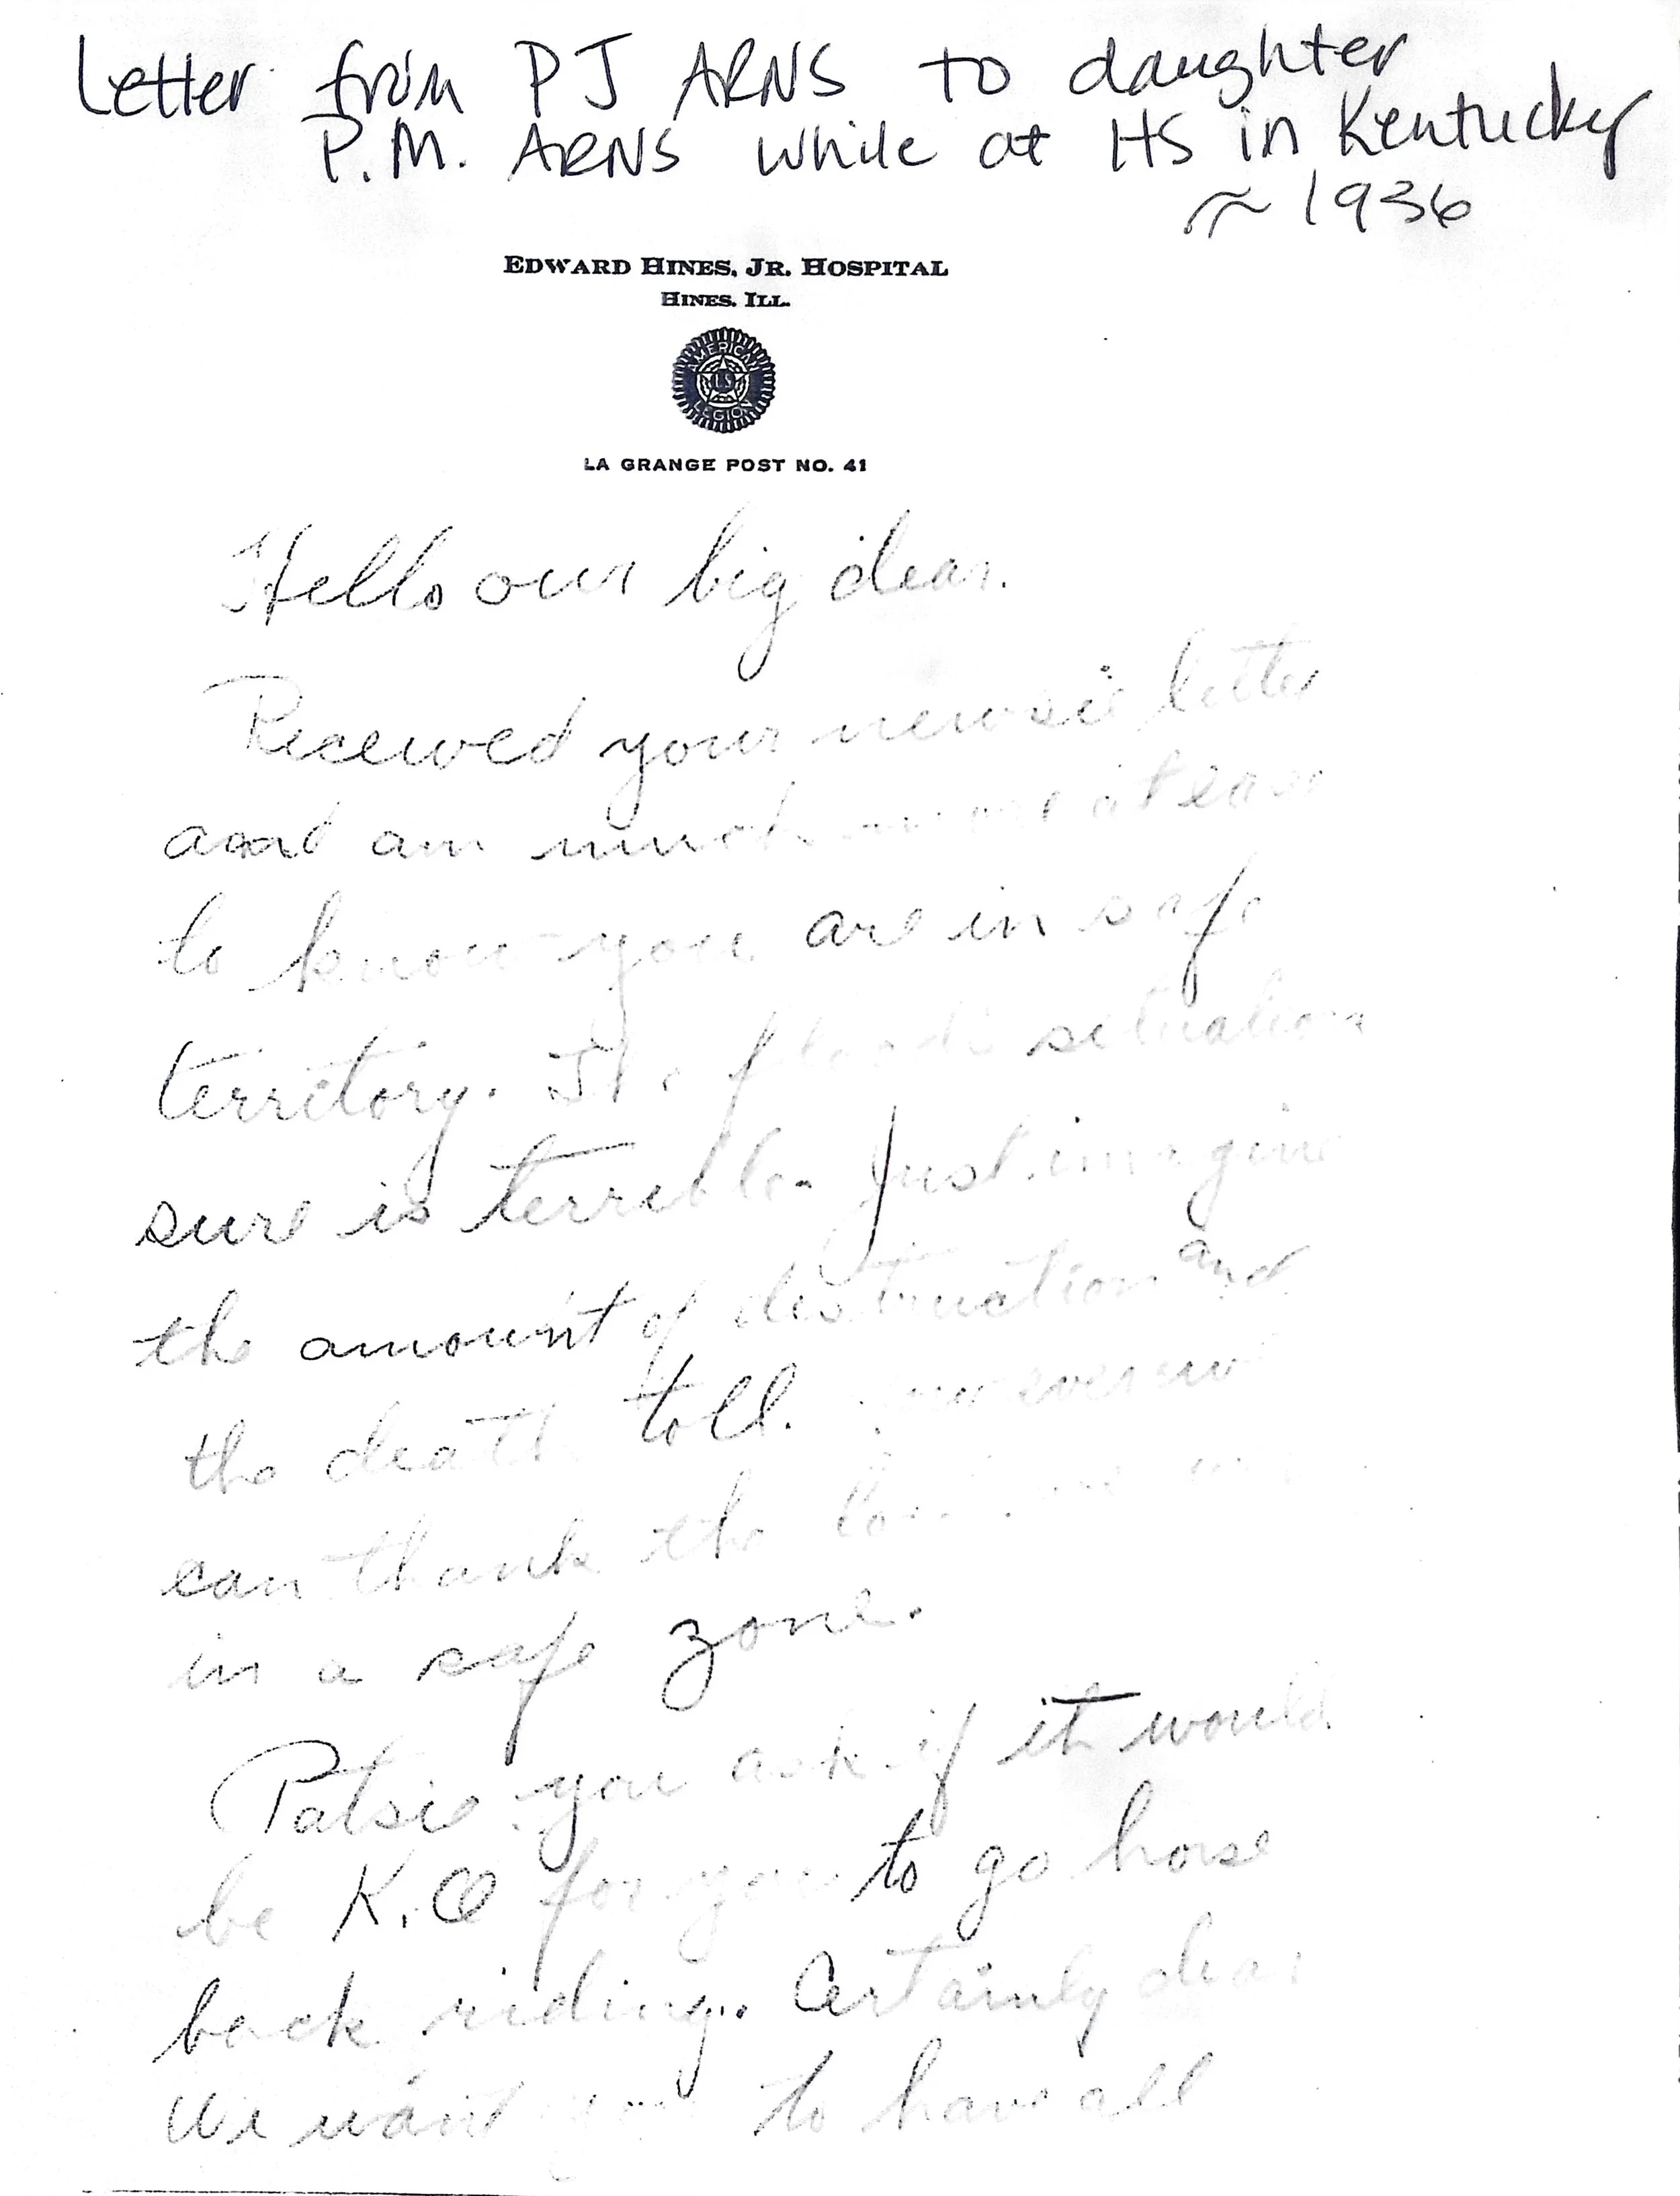 Letter from PJ ARNS to daughter
P.M. ARNS while at HS in Kentucky
~ 1936
EDWARD HINES, JR. HOSPITAL
HINES. ILL.
AMERICAN
U.S.
LEGION
LA GRANGE POST NO. 41
Hello our big dear.
Received your newsie letter
and am much more at ease
to know you are in safe
territory. The flood situation
sure is terrible. Just imagine
the amount of destruction and
the death toll.
can thank the
in a safe zone.
Patsie you ask if it would
be K.O for you to go horse
back riding.. Certainly dear
We want you to have all